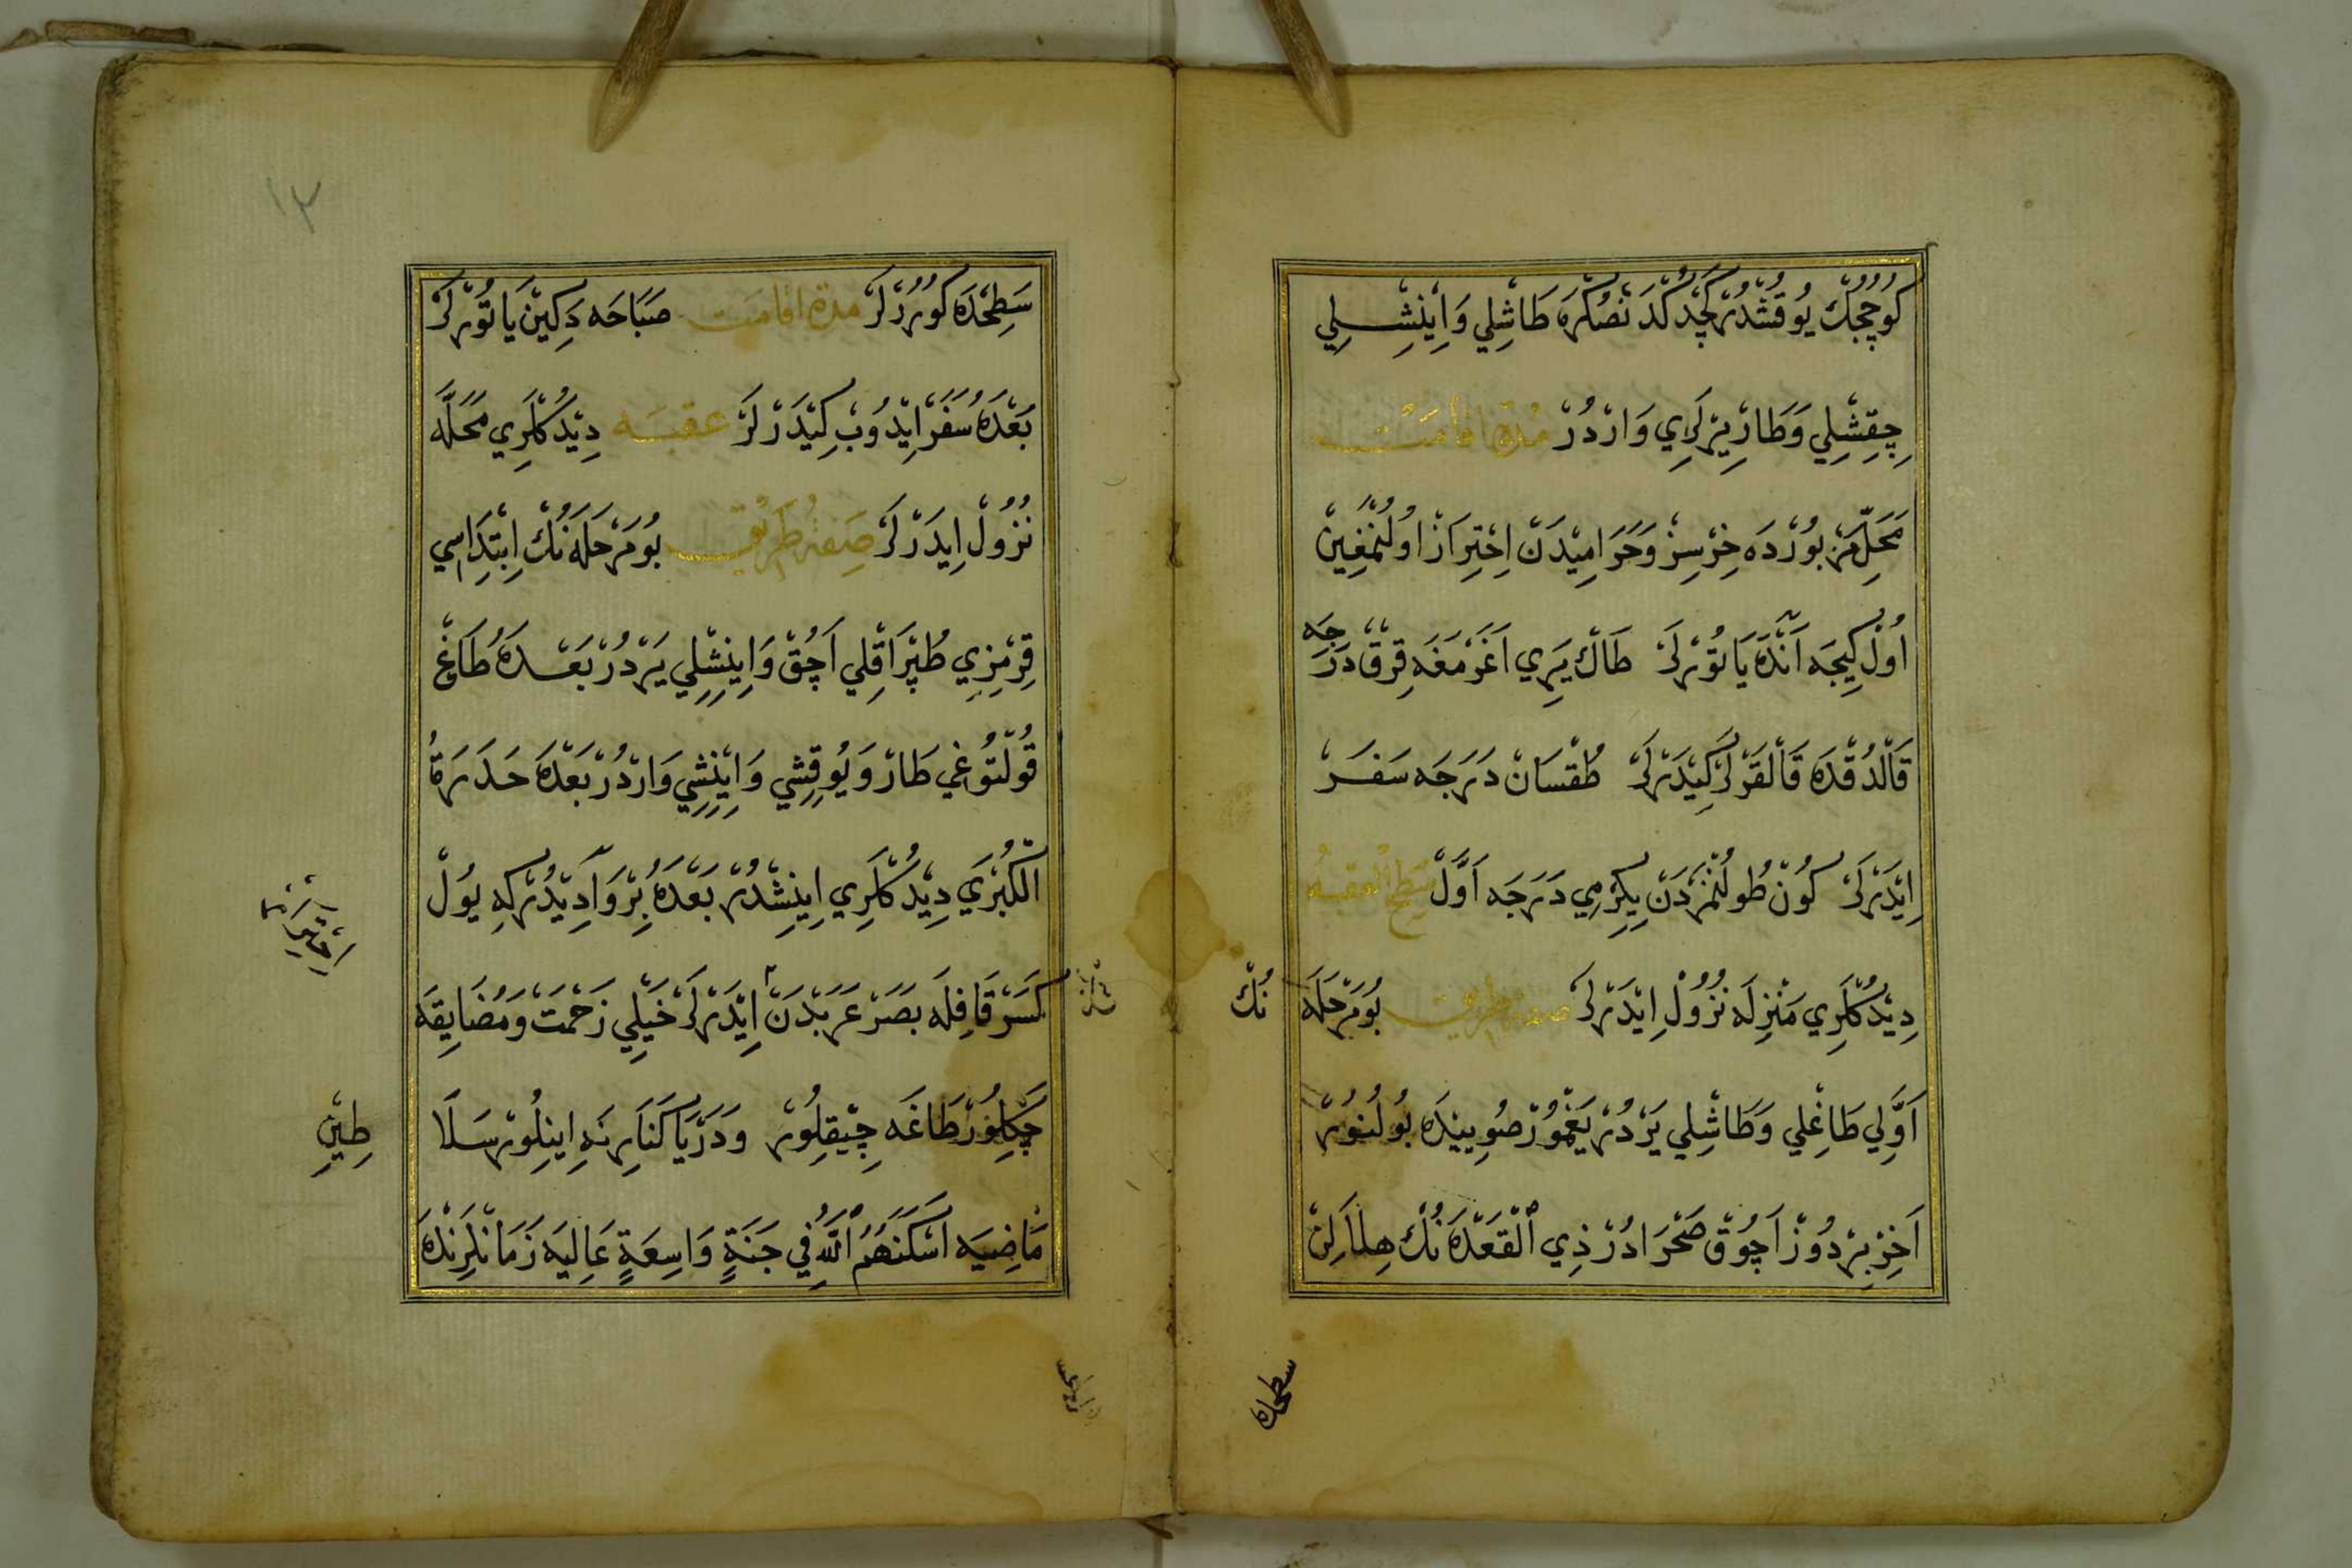 كُوچُجُكْ يُوقُشْدُرْ كَچْدُكْدَنْصُكْرَه طَاشْلِي وَاِينِشْلِي
چِقِشْلِي وَطَارْ يِرْلَرِي وَارْدُرْ مُدَّةِ اقَامَتْ
مَحَلِّ مَزْبُورْدَه خِرْسِزْ وَحَرَامِيدَنْ اِحْتِرَازْ اُولُنْمَغِينْ
اُولْ كِيجَه اَنْدَه يَاتُورْلَرْ طَاكْ يَرِي اَغَرْمَغَه قِرْقْ دَرَجَه
قَالْدُقْدَه قَالْقَرْلَرْ كِيدَرْلَرْ طُقْسَانْ دَرَجَه سَفَرْ
اِيدَرْلَرْ كُونْ طُولُنْمَزْدَنْ يِكِرْمِي دَرَجَه اَوَّلْ سَطْحِ الْعَقَبَه
دِيدُكْلَرِي مَنْزِلَه نُزُولْ اِيدَرْلَرْ صِفَةِ طَرِيقْ بُو مَرْحَلَه نُكْ
اَوَّلِي طَاغْلِي وَطَاشْلِي يَرْدُرْ يَغْمُورْ صُويِينْدَه بُولُنُورْ
اَخِرْ بِرْ دُوزْ اَچُوقْ صَحْرَادُرْ ذِي الْقَعْدَه نُكْ هِلَالِنْ
سطحده
١٣
سَطْحْدَه كُورُرْلَرْ مدة اقامت صَبَاحَه دَكِينْ يَاتُورْلَرْ
بَعْدَهُ سَفَرْ اِيدُوبْ كِيدَرْلَرْ عقبه دِيدُكْلَرِي مَحَلَّه
نُزُولْ اِيدَرْلَرْ صِفَةِ طَرِيقْ بُو مَرْحَلَه نُكْ اِبْتِدَاسِي
قِرْمِزِي طُپْرَاقْلِي اَچُقْ وَاِينِشْلِي يَرْدُرْ بَعْدَهُ طَاغْ
قُولْتُوغِي طَارْ وَيُوقِشِي وَاِينِشِي وَارْدُرْ بَعْدَهُ حَدَرَةُ
الْكُبْرَي دِيدُكْلَرِي اِينِشْدُرْ بَعْدَهُ بِرْ وَادِيدُرْ كِه يُولْ
كَسَرْ قَافِلَه بَصَرْ عَرَبْدَنْ اِيدَرْلَرْ خَيْلِي زَحْمَتْ وَمُضَايِقَه
چَكِلُورْ طَاغَه چِيقِلُورْ وَدَرْيَا كَنَارِنَه اِينِلُورْ سَلَاطِينِ
مَاضِيَه اَسْكَنَهُمُ اللّٰهُ فِي جَنَةٍ وَاسِعَةٍ عَالِيَه زَمَانْلَرِنْدَه